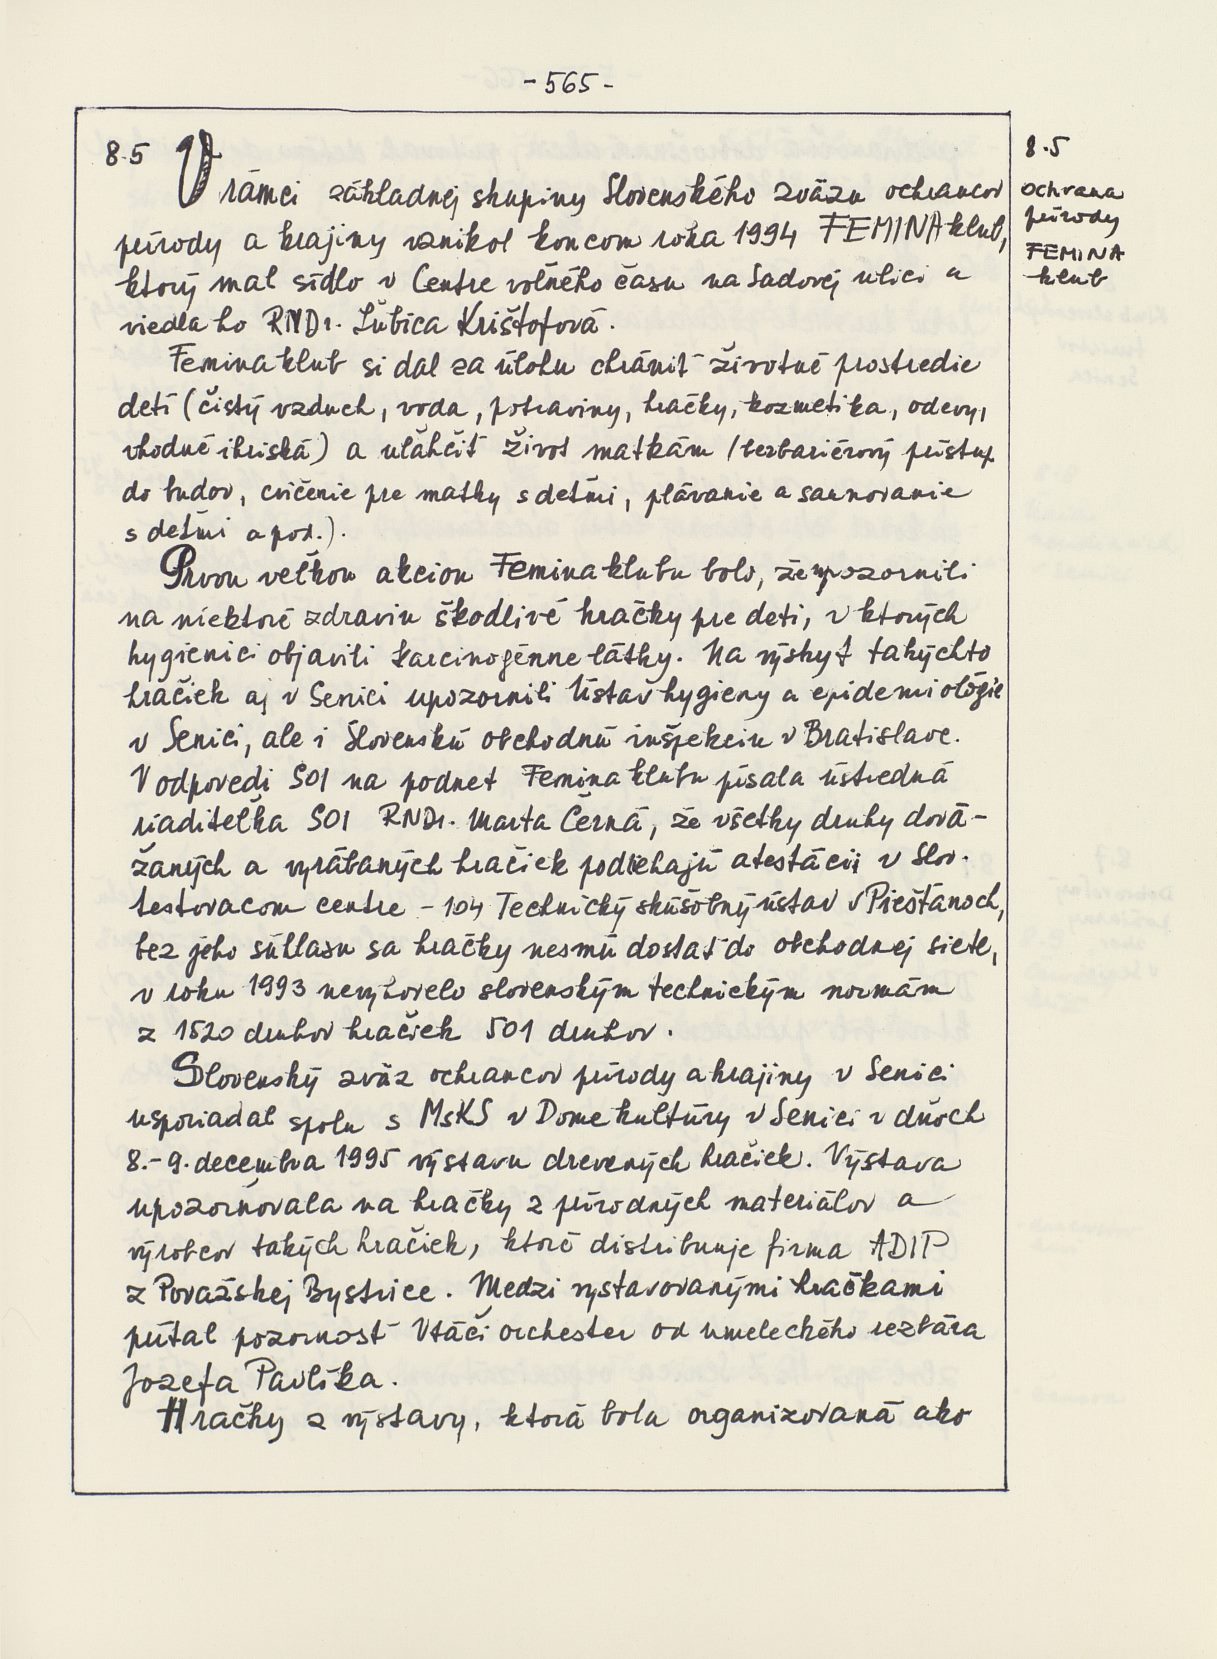 - 565 -
8.5 V rámci základnej skupiny Slovenského zväzu ochrancov
prírody a krajiny vznikol koncom roka 1994 FEMINA klub,
ktorý mal sídlo v Centre voľného času na Sadovej ulici a
viedla ho RNDr. Ľubica Krištofová.
Femina klub si dal za úlohu chrániť životné prostredie
detí (čistý vzduch, voda, potraviny, hračky, kozmetika, odevy,
vhodné ihriská) a uľahčiť život matkám /bezbariérový prístup
do budov, cvičenie pre matky s deťmi, plávanie a saunovanie
s deťmi a pod.).
Prvou veľkou akciou Femina klubu bolo, že upozornili
na niektoré zdraviu škodlivé hračky pre deti, v ktorých
hygienici objavili karcinogénne látky. Na výskyt takýchto
hračiek aj v Senici upozornili Ústav hygieny a epidemiológie
v Senici, ale i Slovenskú obchodnú inšpekciu v Bratislave.
V odpovedi SOI na podnet Femina klubu písala ústredná
riaditeľka SOI RNDr. Marta Černá, že všetky druhy dová-
žaných a vyrábaných hračiek podliehajú atestácii v Slov.
testovacom centre - 104 Technický skúšobný ústav v Piešťanoch,
bez jeho súhlasu sa hračky nesmú dostať do obchodnej siete,
v roku 1993 nevyhovelo slovenským technickým normám
z 1520 druhov hračiek 501 druhov.
Slovenský zväz ochrancov prírody a krajiny v Senici
usporiadal spolu s MsKS v Dome kultúry v Senici v dňoch
8.-9. decembra 1995 výstavu drevených hračiek. Výstava
upozorňovala na hračky z prírodných materiálov a
výrobcov takých hračiek, ktoré distribuuje firma ADIP
z Považskej Bystrice. Medzi vystavovanými hračkami
pútal pozornosť Vtáčí orchester od umeleckého rezbára
Jozefa Pavlíka.
Hračky z výstavy, ktorá bola organizovaná ako
8.5
ochrana
prírody
FEMINA
klub